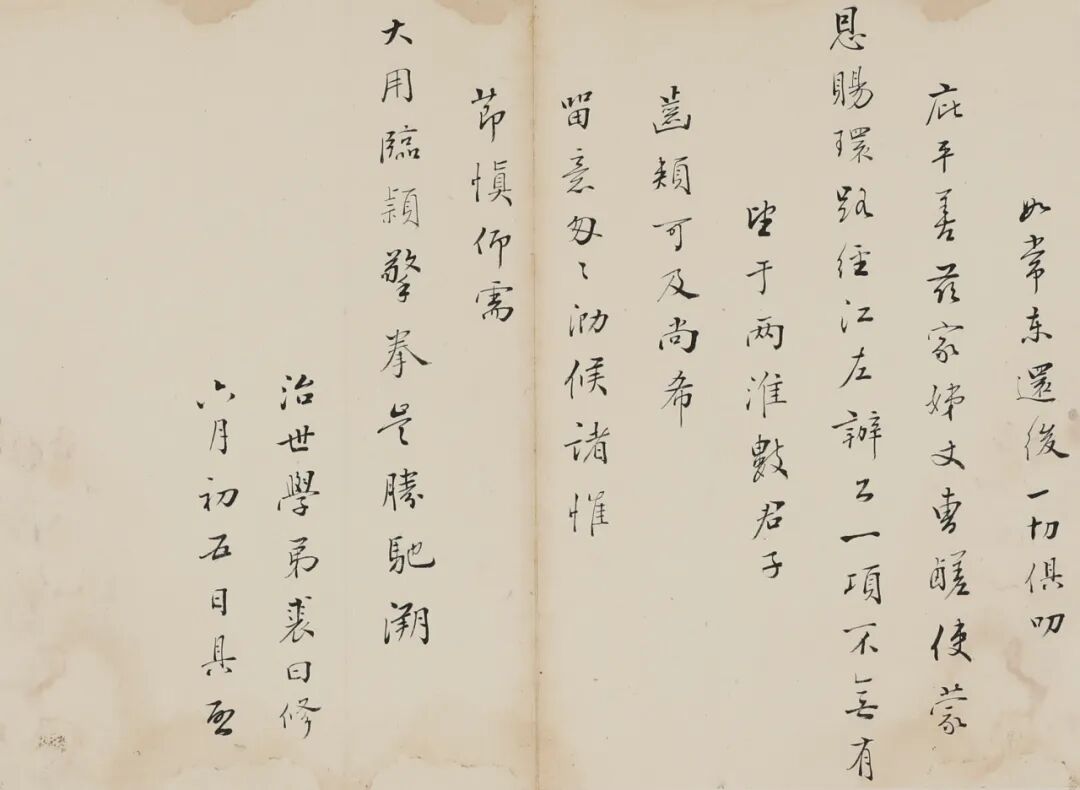 如常东還後一切俱叨
庇平善茲家姊丈曹鹺使蒙
恩賜環路經江左辦公一項不無有
望于两淮數君子
齒類可及尚希
留意匆〻泐候諸惟
節慎仰需
大用臨穎擎拳是勝馳溯
治世學弟裘曰修
六月初五日具啟